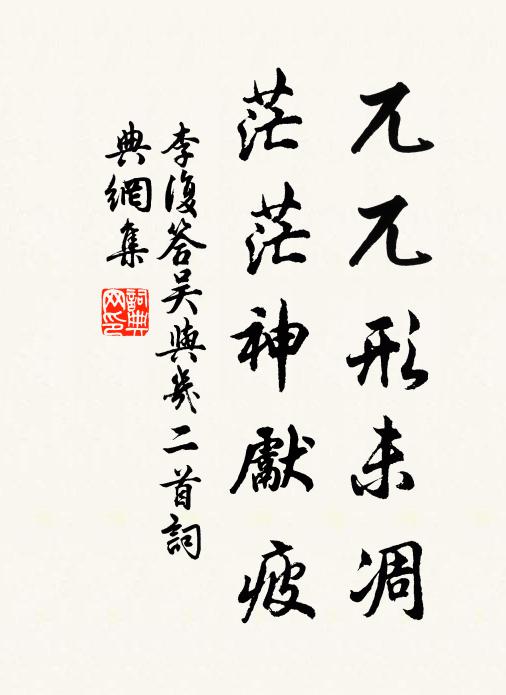 兀兀形未凋
茫茫神獻疲
李復答吳與幾二首詞
典網集
詞典
网印